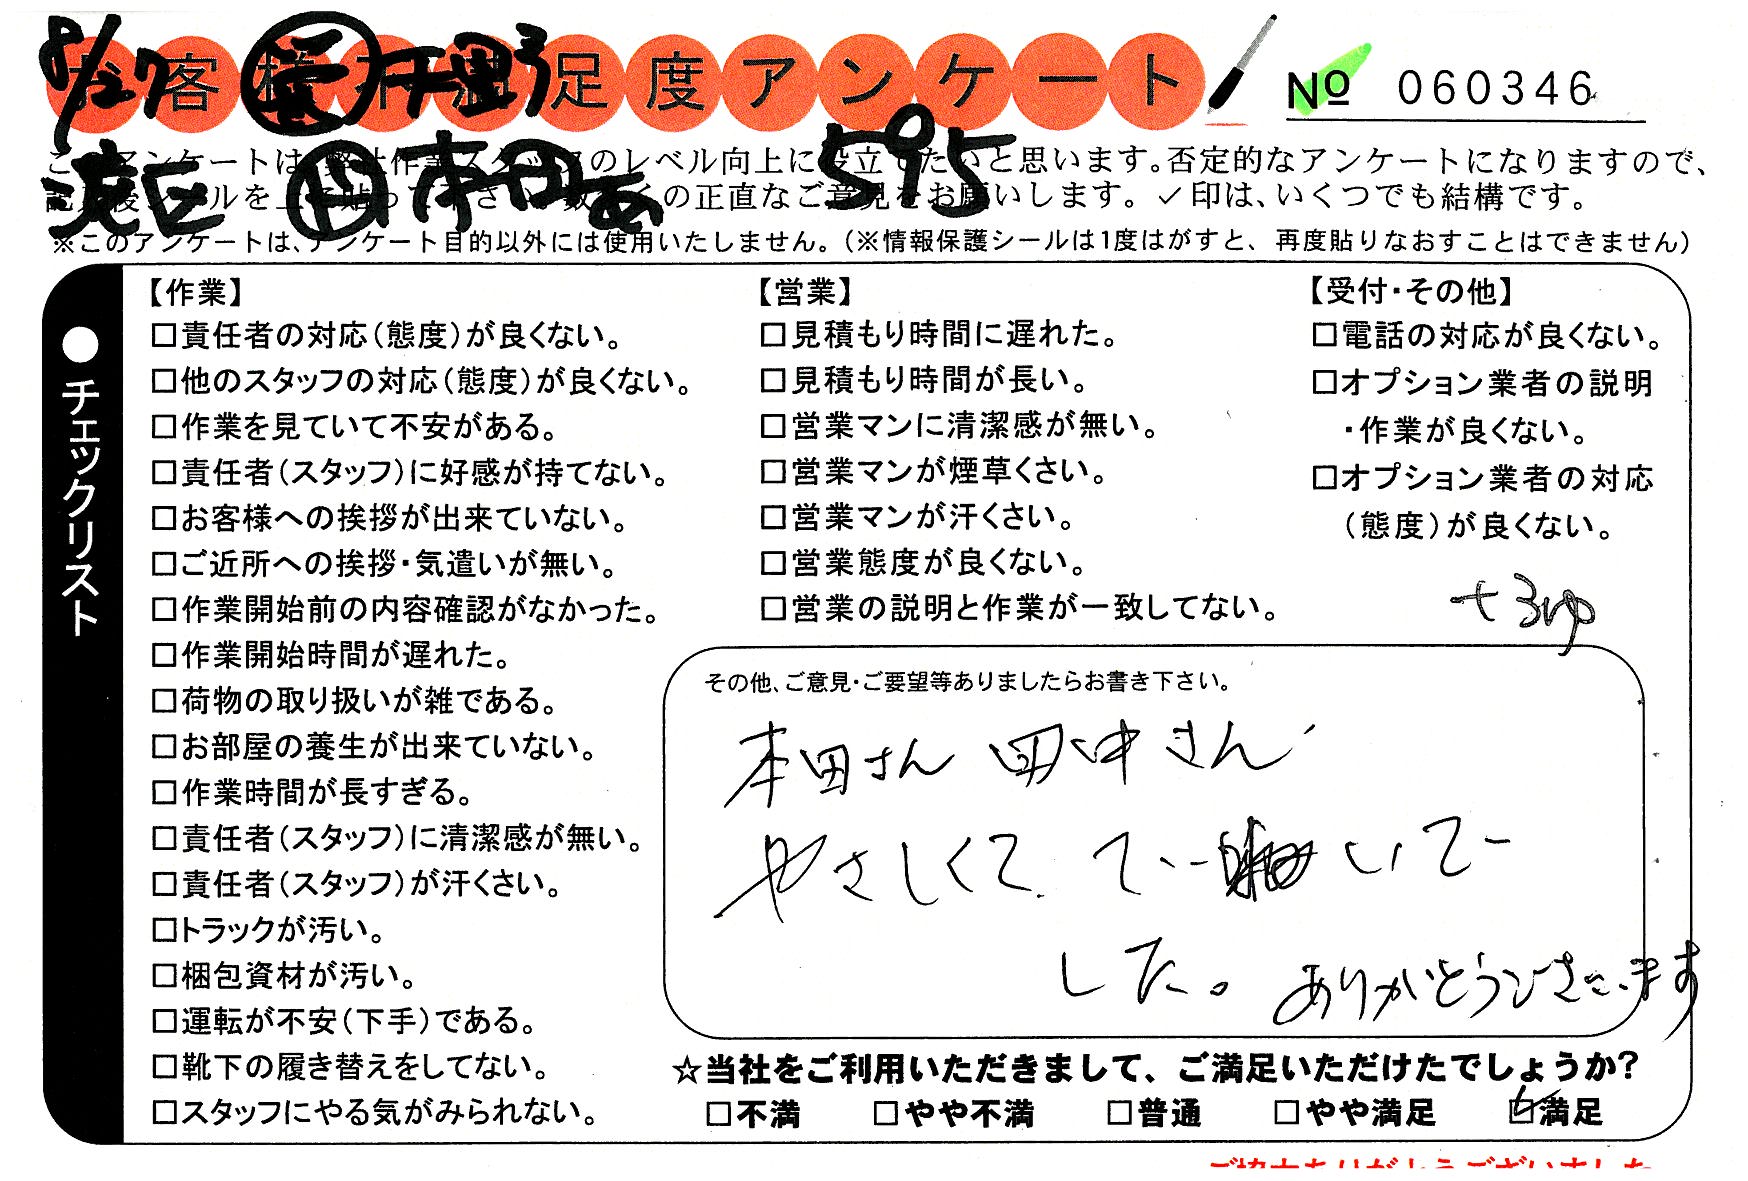 8/27 営 千野3
お客様満足度アンケート
№ 060346
港区 作 本田 595
このアンケートは、弊社作業スタッフのレベル向上に役立てたいと思います。否定的なアンケートになりますので、
記入後シールを上に貼って下さい。数多くの正直なご意見をお願いします。✓印は、いくつでも結構です。
※このアンケートは、アンケート目的以外には使用いたしません。（※情報保護シールは1度はがすと、再度貼りなおすことはできません）
●チェックリスト
【作業】
□責任者の対応（態度）が良くない。
□他のスタッフの対応（態度）が良くない。
□作業を見ていて不安がある。
□責任者（スタッフ）に好感が持てない。
□お客様への挨拶が出来ていない。
□ご近所への挨拶・気遣いが無い。
□作業開始前の内容確認がなかった。
□作業開始時間が遅れた。
□荷物の取り扱いが雑である。
□お部屋の養生が出来ていない。
□作業時間が長すぎる。
□責任者（スタッフ）に清潔感が無い。
□責任者（スタッフ）が汗くさい。
□トラックが汚い。
□梱包資材が汚い。
□運転が不安（下手）である。
□靴下の履き替えをしてない。
□スタッフにやる気がみられない。
【営業】
□見積もり時間に遅れた。
□見積もり時間が長い。
□営業マンに清潔感が無い。
□営業マンが煙草くさい。
□営業マンが汗くさい。
□営業態度が良くない。
□営業の説明と作業が一致してない。
【受付・その他】
□電話の対応が良くない。
□オプション業者の説明
・作業が良くない。
□オプション業者の対応
（態度）が良くない。
その他、ご意見・ご要望等ありましたらお書き下さい。
本田さん 田中さん
やさしくて てーいてー
した。ありがとうございます
☆当社をご利用いただきまして、ご満足いただけたでしょうか?
□不満 □やや不満 □普通 □やや満足 ☑満足
ご協力ありがとうございました